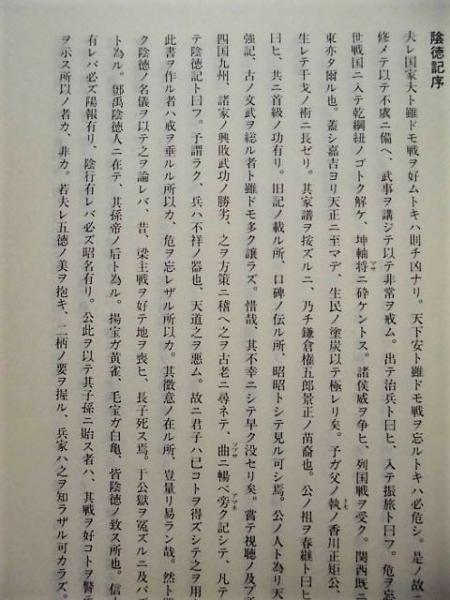 陰徳記序
夫レ国家大ト雖ドモ戦ヲ好ムトキハ則チ凶ナリ。天下安ト雖ドモ戦ヲ忘ルトキハ必危シ。是ノ故
修メテ以テ不虞ニ備ヘ、武事ヲ講ジテ以テ非常ヲ戒ム。出テ治兵ト曰ヒ、入テ振旅ト曰フ。危ヲ忘
世戦国ニ入テ乾綱紐ノゴトク解ケ、坤軸将ニ砕ケントス。諸侯威ヲ争ヒ、列国戦ヲ受ク。関西既ニ
東亦タ爾ル也。蓋シ嘉吉ヨリ天正ニ至マデ、生民ノ塗炭以テ極レリ矣。予ガ父ノ執ノ香川正矩公、
生レテ干戈ノ術ニ長ゼリ。其家譜ヲ按ズルニ、乃チ鎌倉権五郎景正ノ苗裔也。公ノ祖ヲ春継ト曰ヒ
曰ヒ、共ニ首級ノ功有リ。旧記ノ載ル所、口碑ノ伝ル所、昭昭トシテ見ル可シ焉。公ノ人ト為リ天
強記、古ノ文武ヲ総ル者ト雖ドモ多ク譲ラズ。惜哉、其不幸ニシテ早ク没セリ矣。嘗テ視聴ノ及ブ
四国九州、諸家ノ興敗武功ノ勝劣、之ヲ方策ニ稽ヘ之ヲ古老ニ尋ネテ、曲ニ暢ベ旁ク記シテ、凡テ
テ陰徳記ト曰フ。予謂ラク、兵ハ不祥ノ器也、天道之ヲ悪ム。故ニ君子ハ已コトヲ得ズシテ之ヲ用
此書ヲ作ル者ハ戒ヲ垂ルル所以カ、危ヲ忘レザル所以カ。其徴意ノ在ル所、豈量リ易ラン哉。然ト
ク陰徳ノ名儀ヲ以テ之ヲ論レバ、昔、梁主戦ヲ好テ地ヲ喪ヒ、長子死ス焉。于公獄ヲ冤ズルニ及バ
ト為ル。鄧禹陰徳人ニ在テ、其孫帝ノ后ト為ル。揚宝ガ黄雀、毛宝ガ白亀、皆陰徳ノ致ス所也。信
有レバ必ズ陽報有リ、陰行有レバ必ズ昭名有リ。公此ヲ以テ其子孫ニ貽ス者ハ、其戦ヲ好コトヲ警
ヲ示ス所以ノ者カ、非カ。若夫レ五徳ノ美ヲ抱キ、二柄ノ要ヲ握ル、兵家ハ之ヲ知ラザル可カラズ。